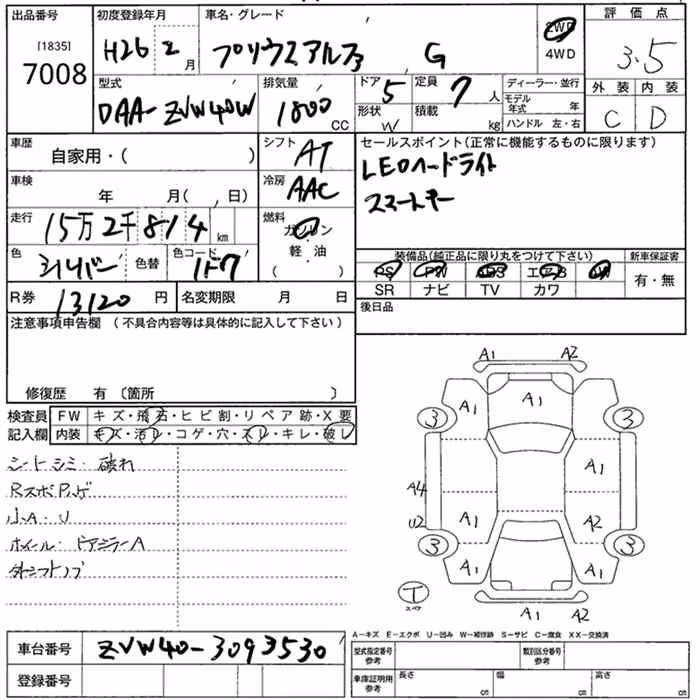 出品番号 初度登録年月 車名・グレード 評価点
[1835]
7008 H26 2月 プリウスアルファ G 2WD
4WD 3.5
型式 排気量 ドア 定員 ディーラー・並行 外装 内装
DAA-ZVW40W 1800 CC 5 7人 モデル年式 年 C D
形状 W 積載 kg ハンドル 左・右
車歴 自家用・( ) シフト AT セールスポイント(正常に機能するものに限ります)
LEDヘッドライト
車検 年 月( , 日) 冷房 AAC スマートキー
走行 15万2千814 km 燃料 ガソリン
軽・油
( )
色 シルバー 色替 色コード 1F7 装備品(純正品に限り丸をつけて下さい) 新車保証書
PS PW ABS エアB AW 有・無
SR ナビ TV カワ
R券 13120円 名変期限 月 日 後日品
注意事項申告欄(不具合内容等は具体的に記入して下さい)
修復歴 有(箇所 )
検査員 FW キズ・飛石・ヒビ割・リペア跡・X要
記入欄 内装 キズ・汚レ・コゲ・穴・スレ・キレ・破レ
シートシミ・破れ
小A・U
ホイール・ドアミラーA
A1 A2
A1 A1
3 3
A1
A4
U2 A1 A2
3 3
A1 A1
T
スペア
A1 A2
A-キズ E-エクボ U-凹み W-補修跡 S-サビ C-腐食 XX-交換済
車台番号 ZVW40-3093530
登録番号
型式指定番号 参考 類別区分番号 参考
車庫証明用 参考 長さ cm 幅 cm 高さ cm